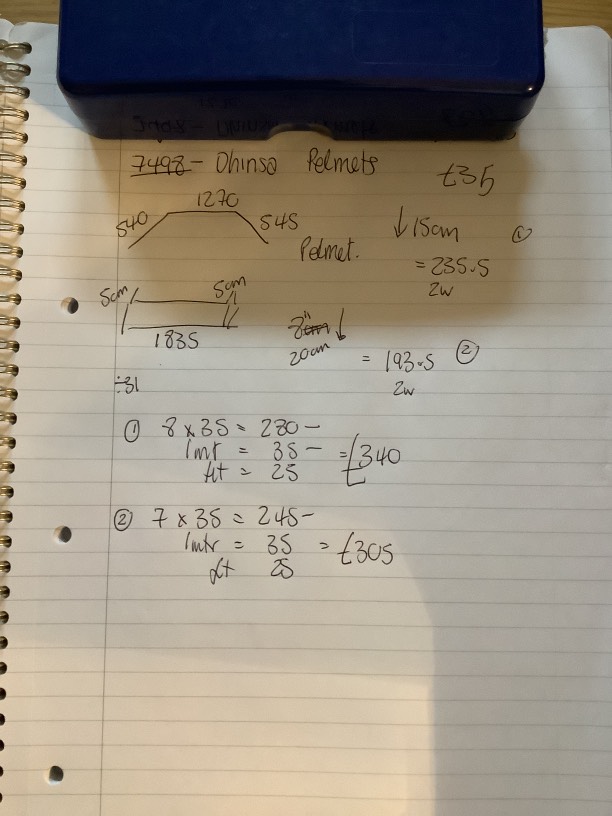 7498 - Dhinsa Pelmets £35
1270
540 545
Pelmet.
↓ 15cm ①
= 235.5
2w
5cm 5cm
1835
20cm
= 193.5 ②
2w
÷31
① 8 x 35 = 280 -
1mtr = 35 - = £340
ft = 25
② 7 x 35 = 245 -
1mtr = 35 = £305
ft 25